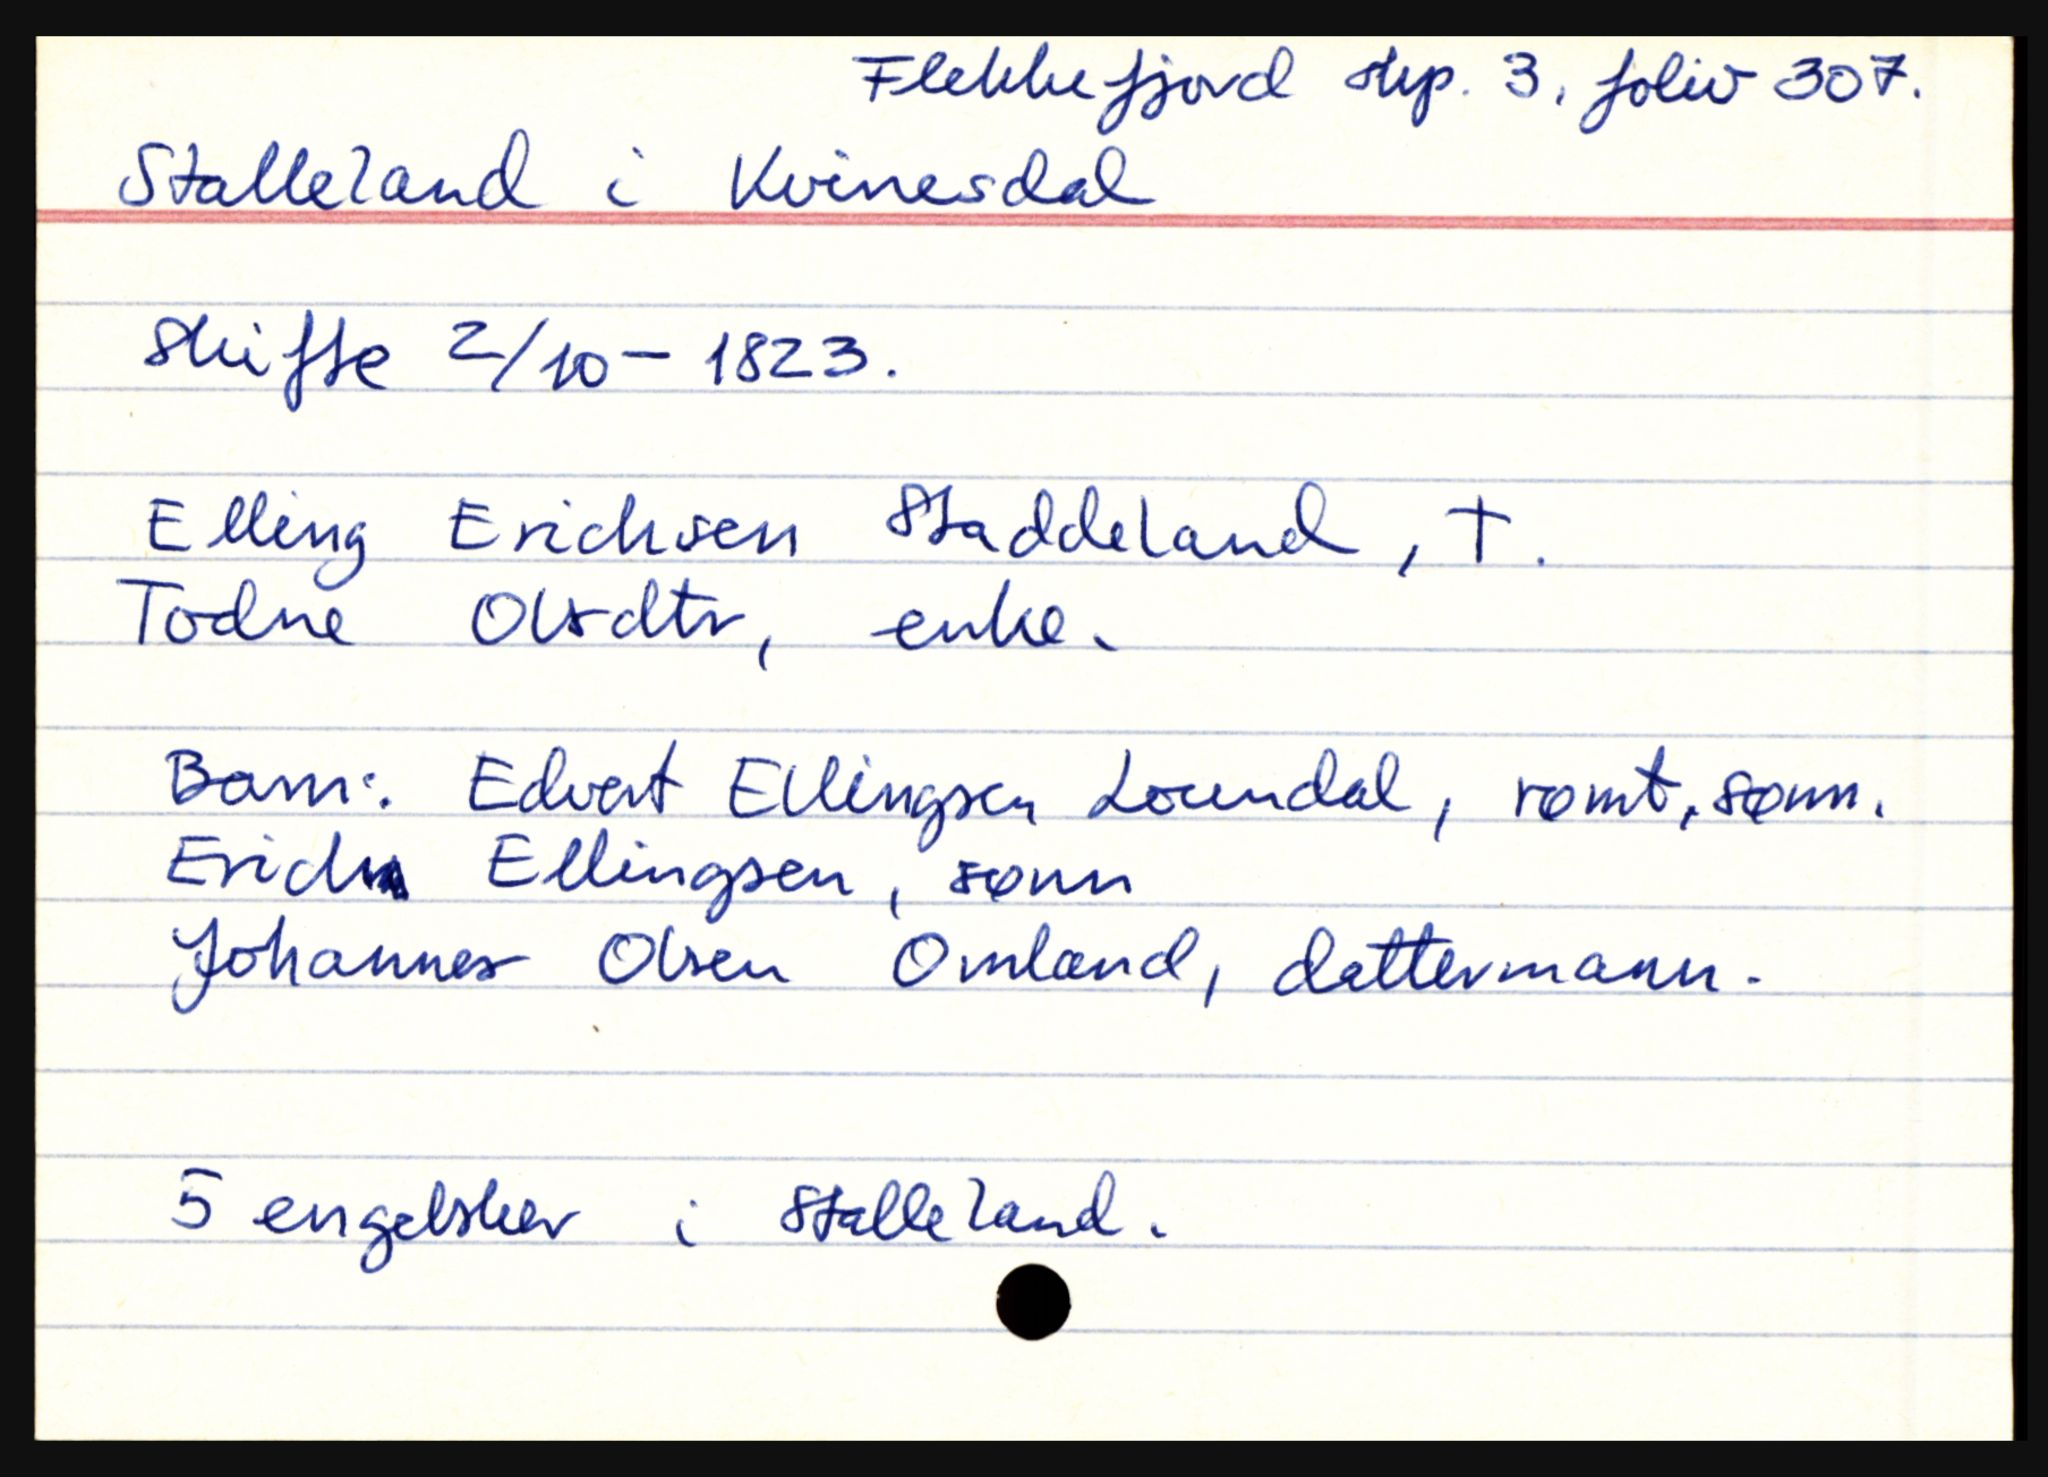 Flekkefjord skp. 3, folio 307.
Stalleland i Kvinesdal
Skifte 2/10 - 1823.
Elling Erichsen Staddeland, †.
Todne Olsdtr, enke.
Barn: Edvert Ellingsen Loundal, rømt, sønn.
Erich Ellingsen, sønn
Johannes Olsen Omland, dattermann.
5 engelsker i Stalleland.